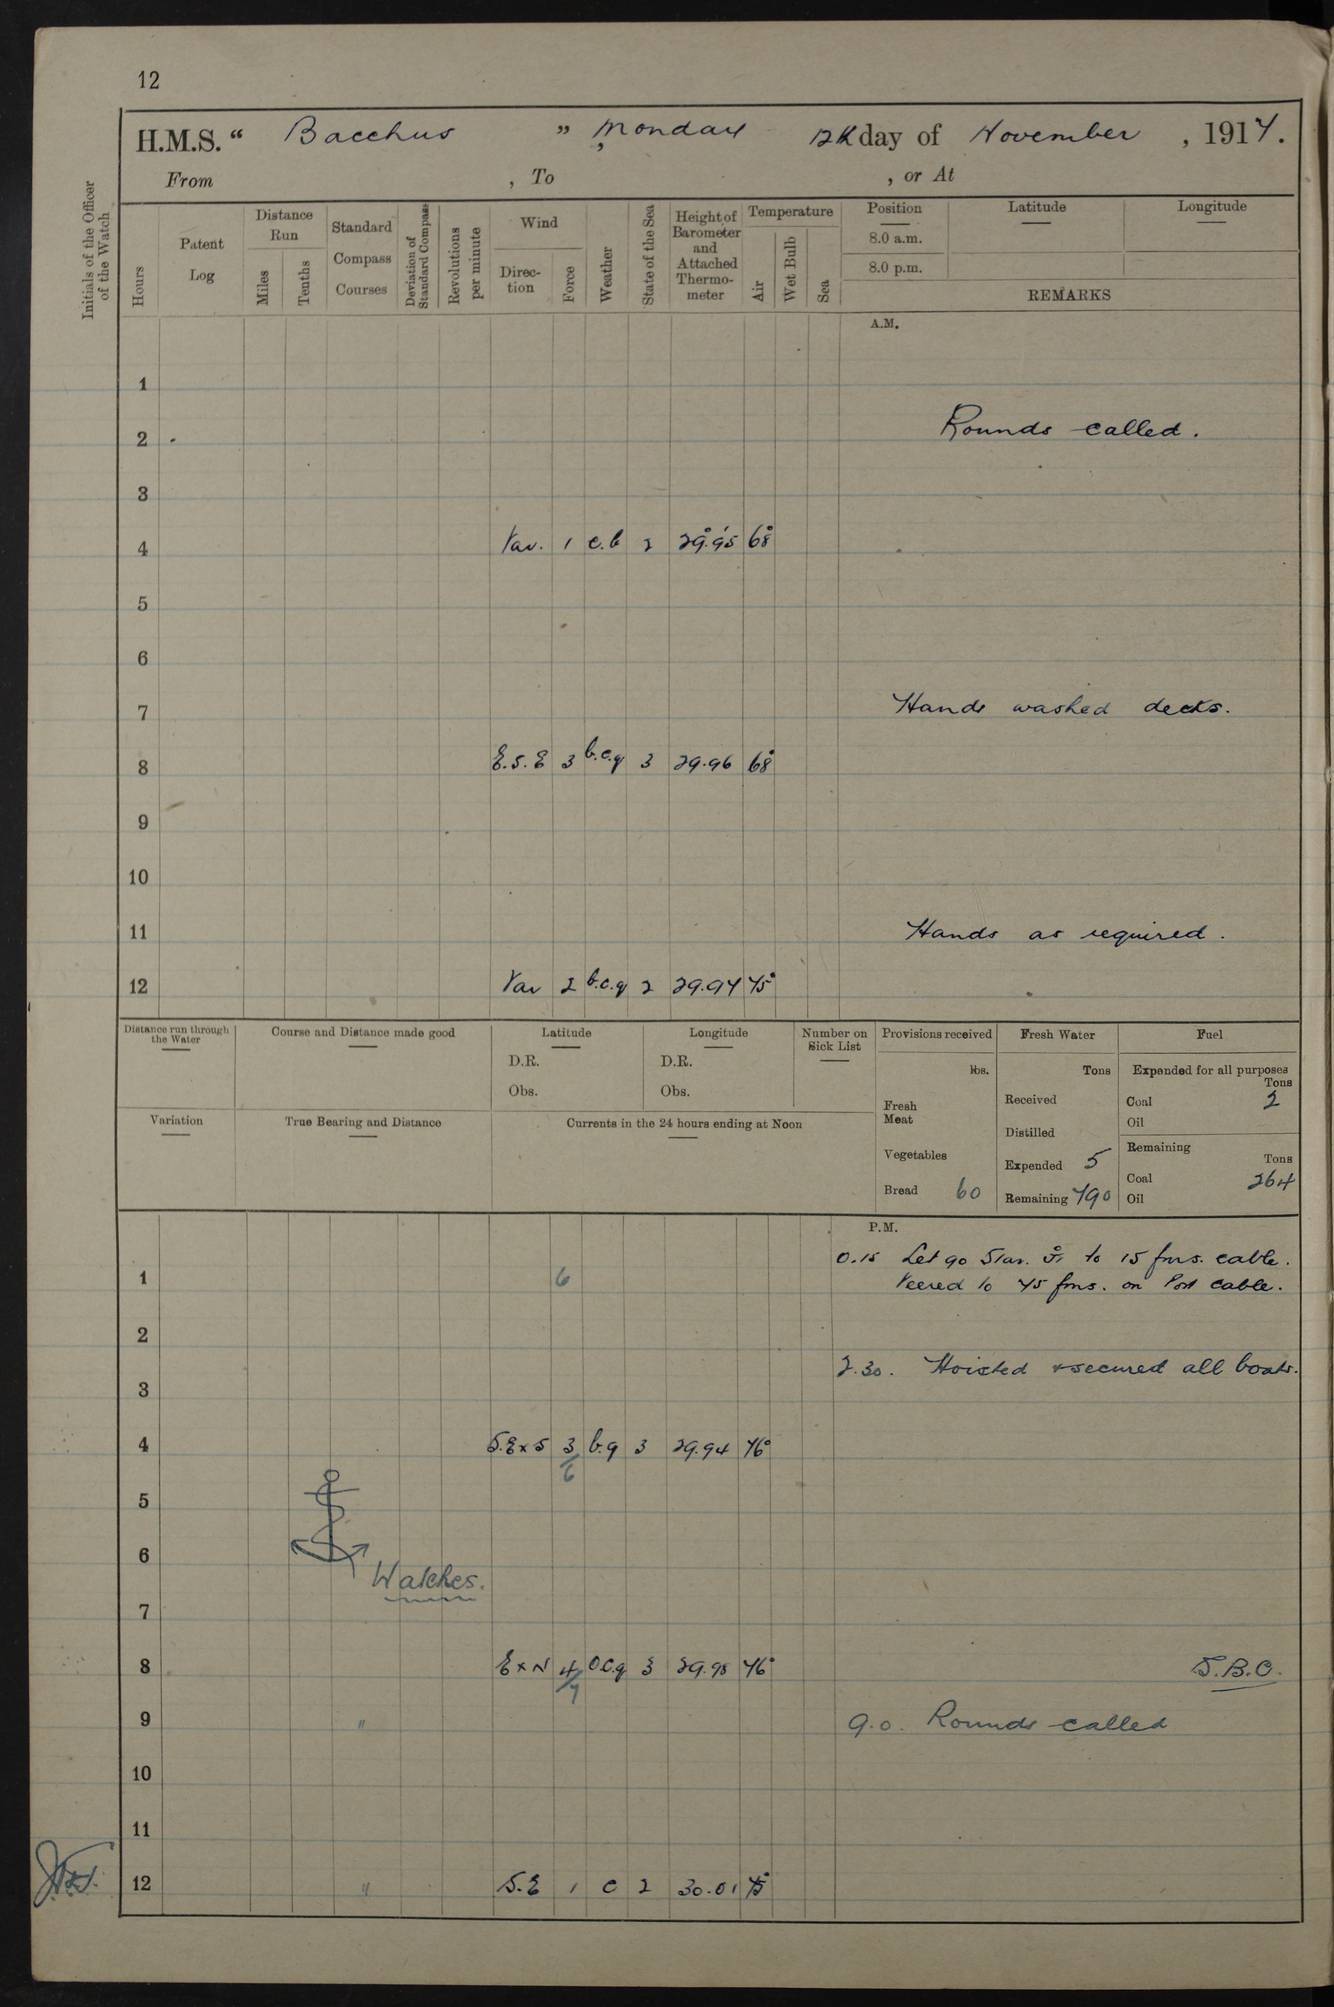 12
H.M.S. “ Bacchus ”, Monday 12th day of November, 1917.
From , To , or At
Initials of the Officer of the Watch
Hours
Patent Log
Distance Run
Miles
Tenths
Standard Compass Courses
Deviation of Standard Compass
Revolutions per minute
Wind
Direc-tion
Force
Weather
State of the Sea
Height of Barometer and Attached Thermo-meter
Temperature
Air
Wet Bulb
Sea
Position
8.0 a.m.
8.0 p.m.
Latitude
Longitude
REMARKS
A.M.
1
2 Rounds called.
3
4 Var. 1 c.b 2 29.95 68°
5
6
7 Hands washed decks.
8 E.S.E 3 b.c.q 3 29.96 68°
9
10
11 Hands as required.
12 Var 2 b.c.q 2 29.97 75°
Distance run through the Water
Course and Distance made good
Latitude
D.R.
Obs.
Longitude
D.R.
Obs.
Number on Sick List
Provisions received
lbs.
Fresh Meat
Vegetables
Bread 60
Fresh Water
Tons
Received
Distilled
Expended 5
Remaining 790
Fuel
Expended for all purposes
Tons
Coal 2
Oil
Remaining
Tons
Coal 264
Oil
Variation
True Bearing and Distance
Currents in the 24 hours ending at Noon
P.M.
0.15 Let go Star. to 15 fms. cable.
1 6 Veered to 75 fms. on Port cable.
2
2.30. Hoisted & secured all boats.
3
4 S.E x S 3/6 b.q 3 29.94 76°
5
6 Watches.
7
8 E x N 4/7 o.c.q 3 29.98 76° S.B.O.
9 " 9.0. Rounds called
10
11
12 " S.E 1 c 2 30.01 75°